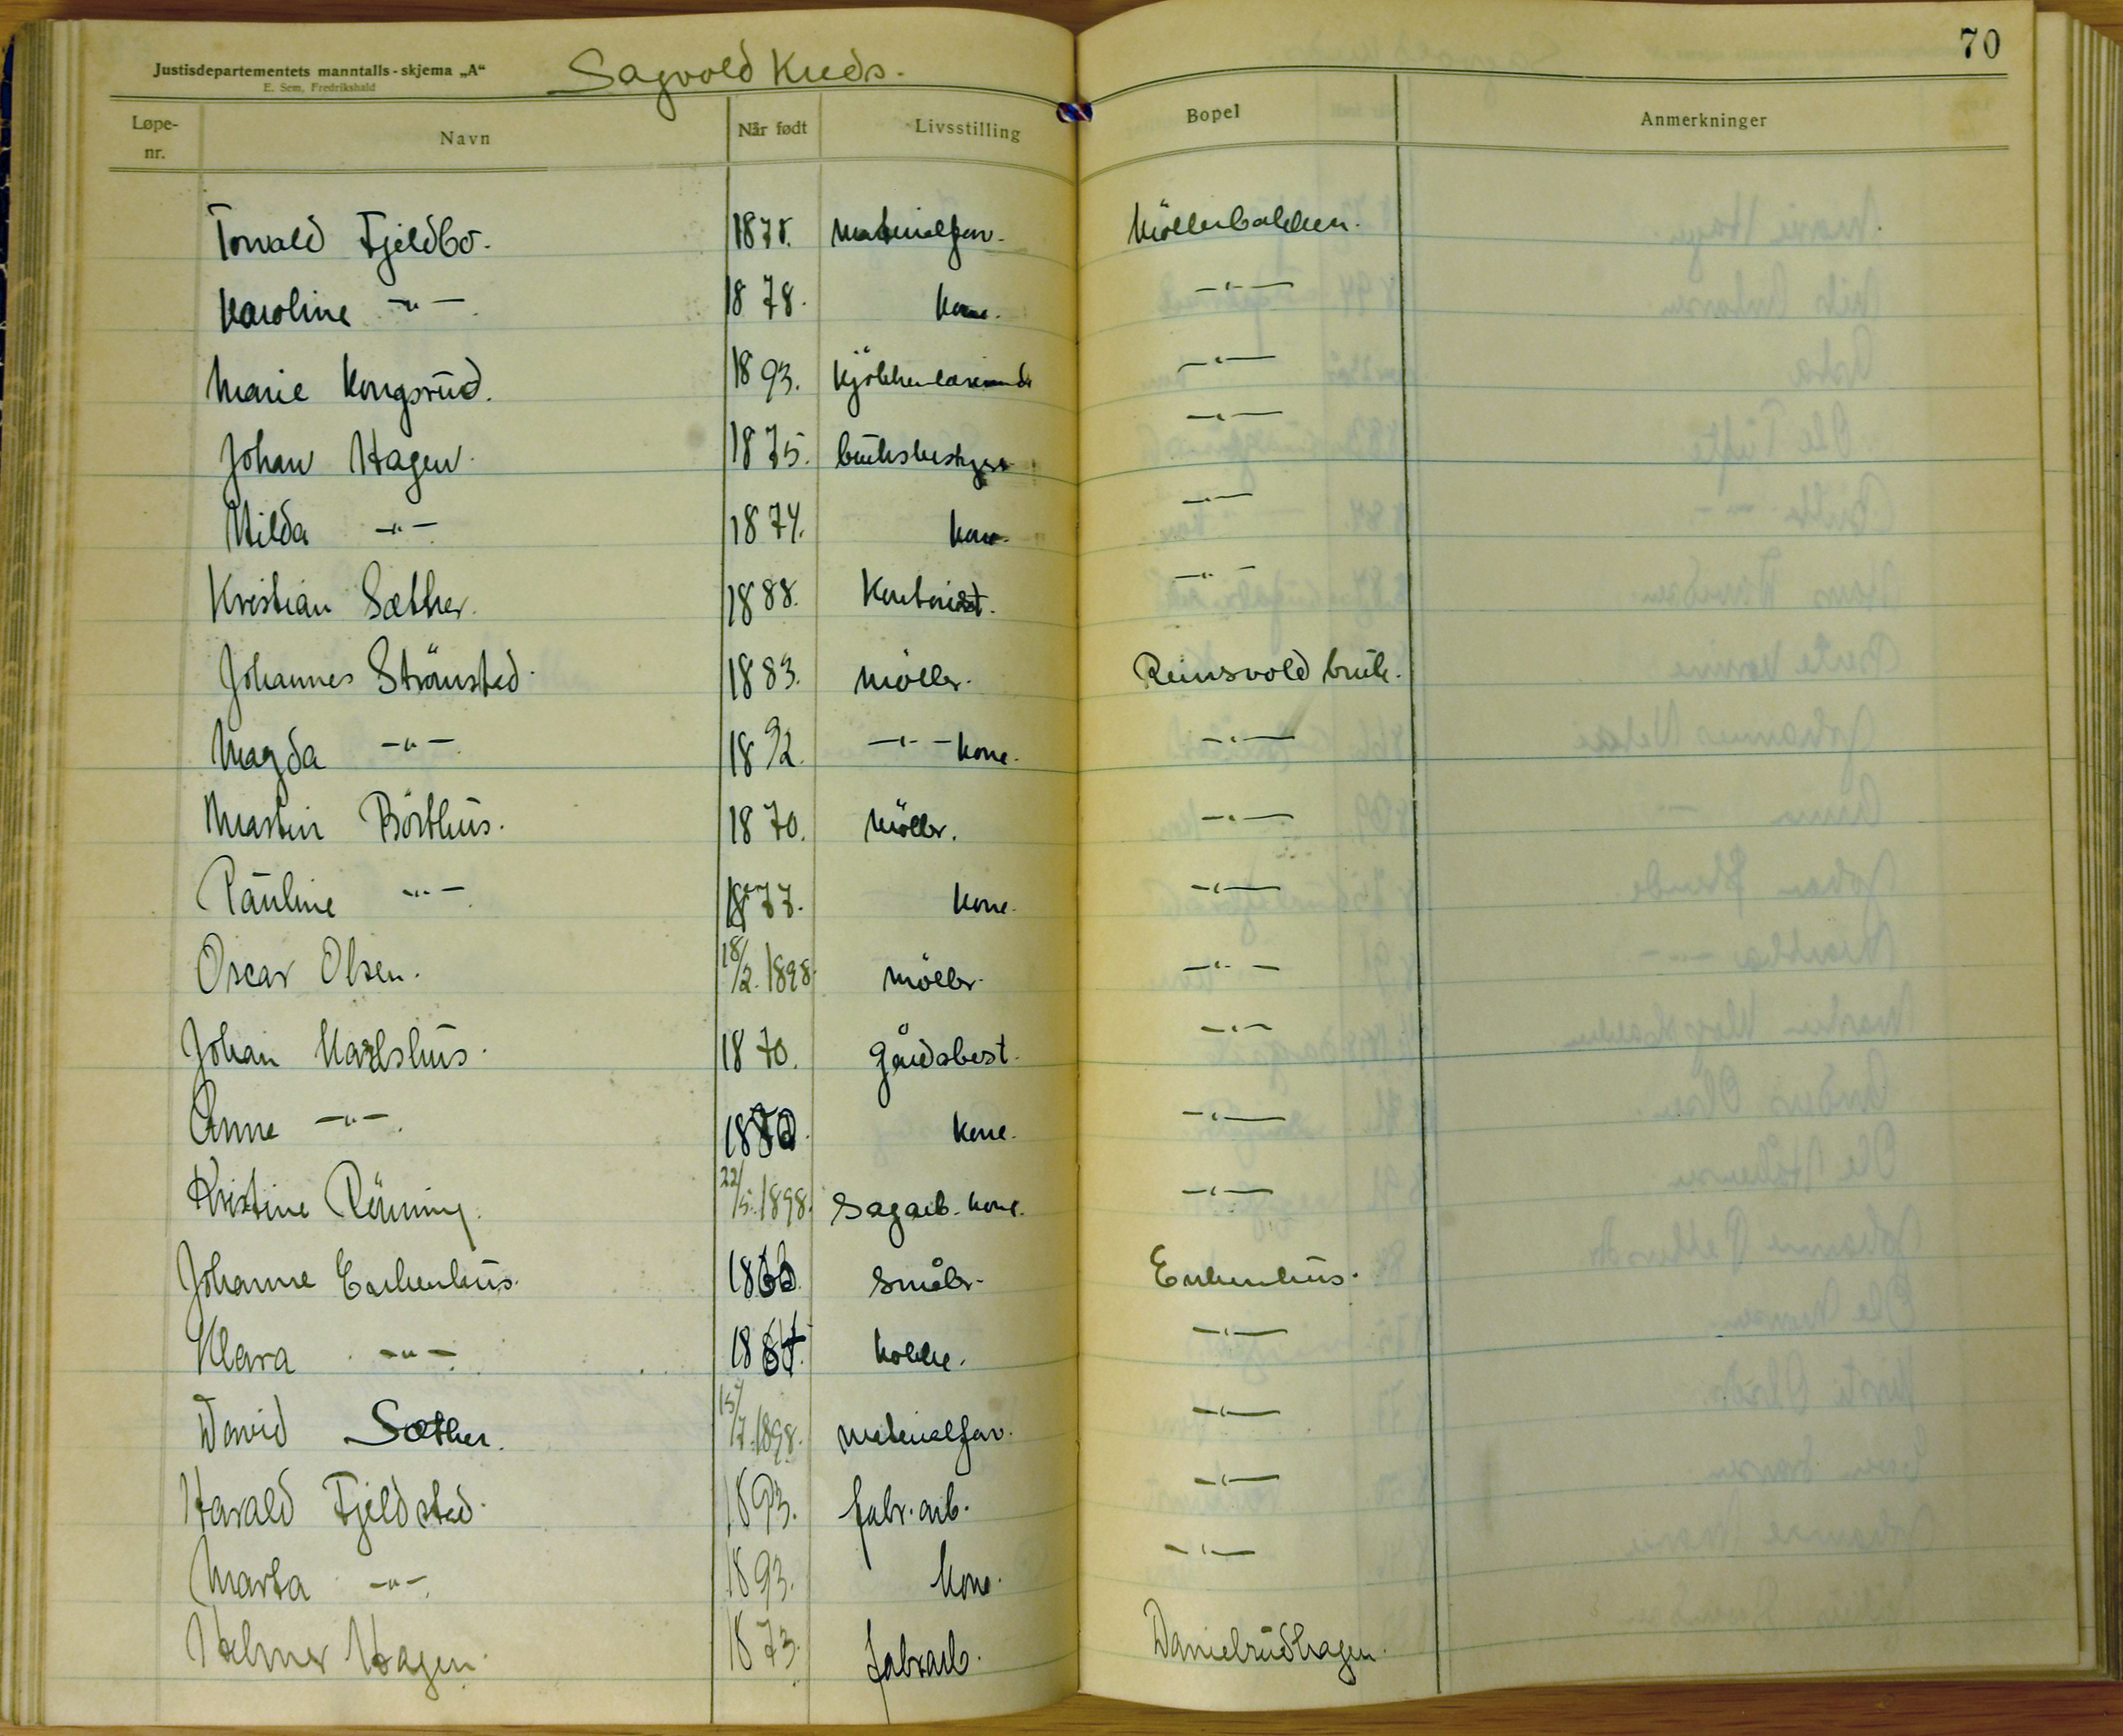 70
Justisdepartementets manntalls-skjema „A“ Sagvold Kreds.
E. Sem, Fredrikshald
Løpe-nr. Navn Når født Livsstilling Bopel Anmerkninger
Torvald Fjeldbo. 1878. materialforv. Möllerbakken.
Karoline -"- 1878. kone. -"-
Marie Kongsrud. 1893. -"-
Johan Hagen. 1875. bruksbestyrer -"-
Hilda -"- 1874. kone. -"-
Kristian Sæther. 1888. Kontorist. -"-
Johannes Strömsted. 1883. möller. Reinsvold bruk.
Magda -"- 1892. -"- kone. -"-
Martin Börthus. 1870. möller. -"-
Pauline -"- 1877. kone. -"-
Oscar Olsen. 18/2. 1898. möller. -"-
Johan Karlshus. 1870. Gårdsbest. -"-
Anne -"-. kone. -"-
Kristine Rönning. 22/5. 1898. Sagarb. kone. -"-
Johanne Enkenhus. Småbr. Enkenhus.
Klara -"- -"-
David Sæther. 15/7. 1898. materialforv. -"-
Harald Fjeldsted. 1893. fabr. arb. -"-
Marta -"- 1893. kone. -"-
Helmer Hagen. 1873. fabrarb. Danielrudhagen.